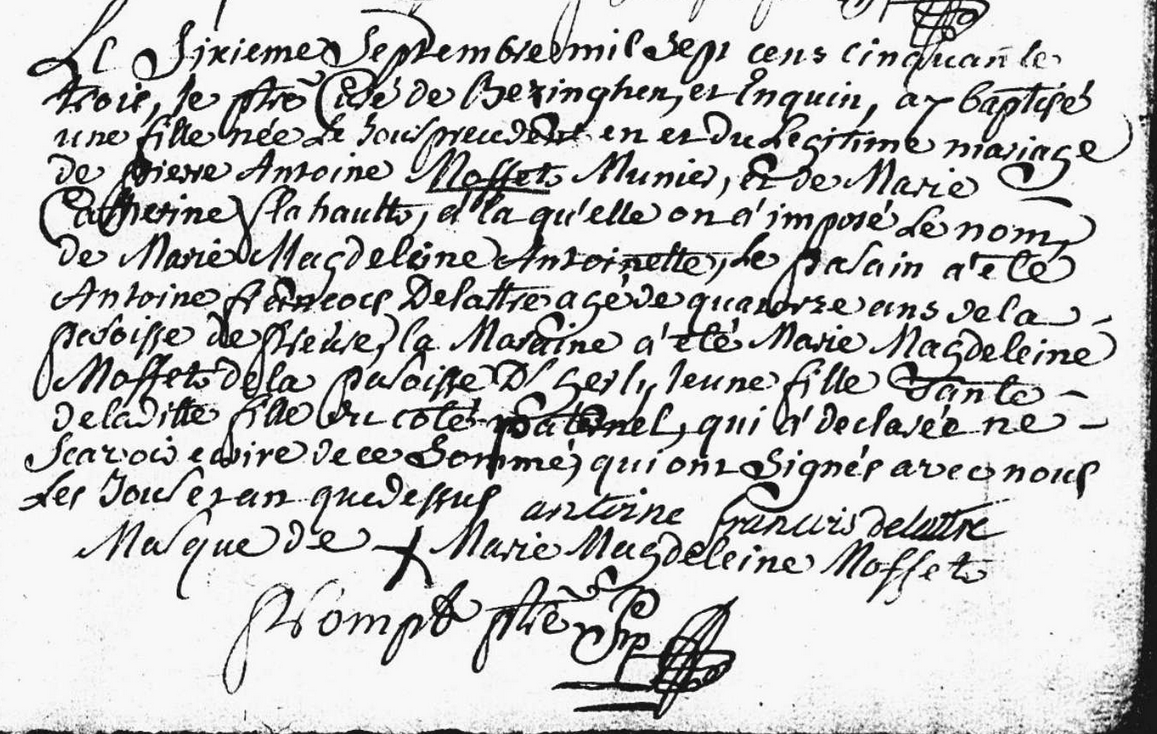 Le Sixieme Septembre mil Sept cens cinquante
trois, Je ptre Curé de Bezinghen, et Enquin, ay baptisé
une fille née Le Jour precedent en et du Legitime mariage
de pierre Antoine Moffet Munier, Et de Marie
Catherine Flahault, a la qu'elle on a imposé Le nom
de Marie Magdeleine Antoinette, Le parain a été
Antoine francois Delattre agé de quatorze ans de la
paroisse de preure, la Maraine a été Marie Magdeleine
Moffet de la paroisse D' Jeune fille Tante
de laditte fille du coté paternel, qui a declarée ne
Scavoir ecrire de ce Sommé, qui ont Signés avec nous
Les Jour et an que dessus antoine francois delattre
Marque de X Marie Magdeleine Moffet
prompt ptre